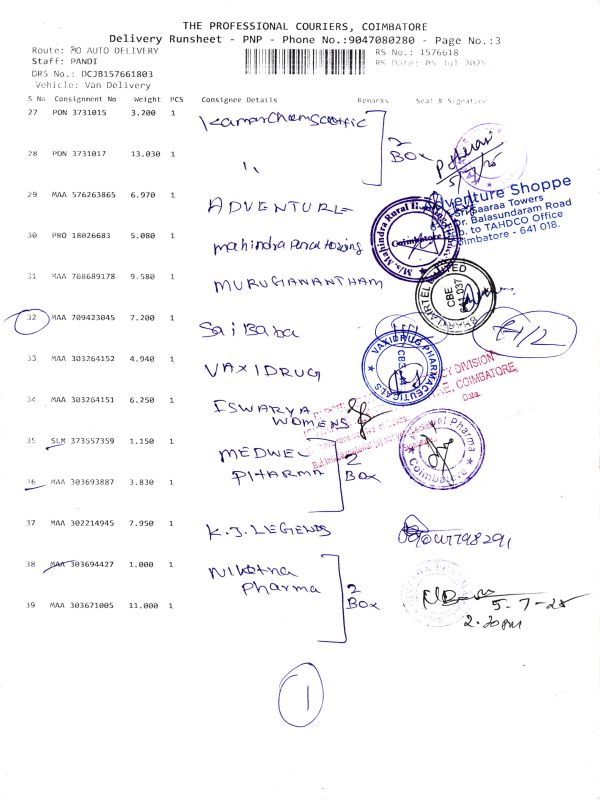 THE PROFESSIONAL COURIERS, COIMBATORE
Delivery Runsheet - PNP - Phone No.:9047080280 - Page No.:3
Route: MO AUTO DELIVERY
RS No.: 1576618
Staff: PANDI
RS Date: 05 Jul 2025
DRS No.: DCJB157661803
Vehicle: Van Delivery
S No Consignment No Weight PCS Consignee Details Remarks Seal & Signature
27 PON 3731015 3.200 1
2 BOX
28 PON 3731017 13.030 1 "
5/7/25
29 MAA 576263865 6.970 1 ADVENTURE
Adventure Shoppe
Sri Saaraa Towers
Dr. Balasundaram Road
Opp. to TAHDCO Office
Coimbatore - 641 018.
30 PRO 18026683 5.080 1 mahindra
M/s. Mahindra Rural
Coimbatore
31 MAA 708689178 9.580 1 MURUGANANTHAM
BHARTI AIRTEL LIMITED
CBE
641 037
32 MAA 709423045 7.200 1 Sai Baba
33 MAA 303264152 4.940 1 VAXIDRUG
VAXIDRUG PHARMACEUTICALS
CBE
34 MAA 303264151 6.250 1 ISWARYA WOMENS
DIVISION
COIMBATORE,
Date
35 SLM 373557359 1.150 1 MEDWEL PHARMA
2 BOX
Medwel Pharma
Coimbatore
36 MAA 303693887 3.830 1
37 MAA 302214945 7.950 1 K.J. LEGENDS
9047798291
38 MAA 303694427 1.000 1 Niketna Pharma
2 BOX
39 MAA 303671005 11.000 1
5-7-25
2.30pm
1